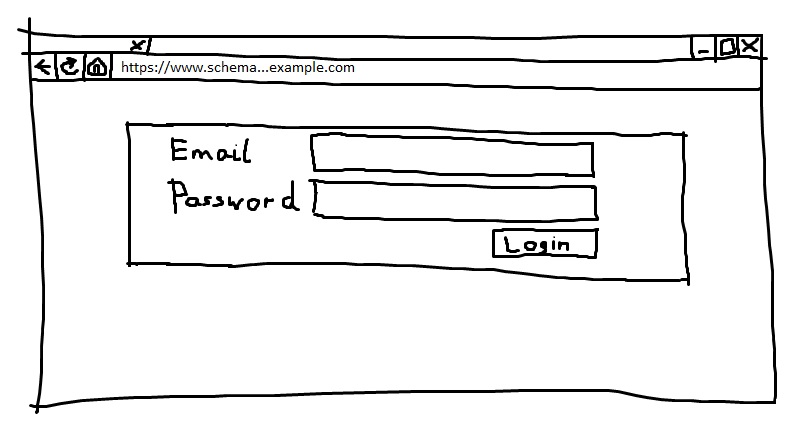 https://www.schema...example.com
Email
Password
Login